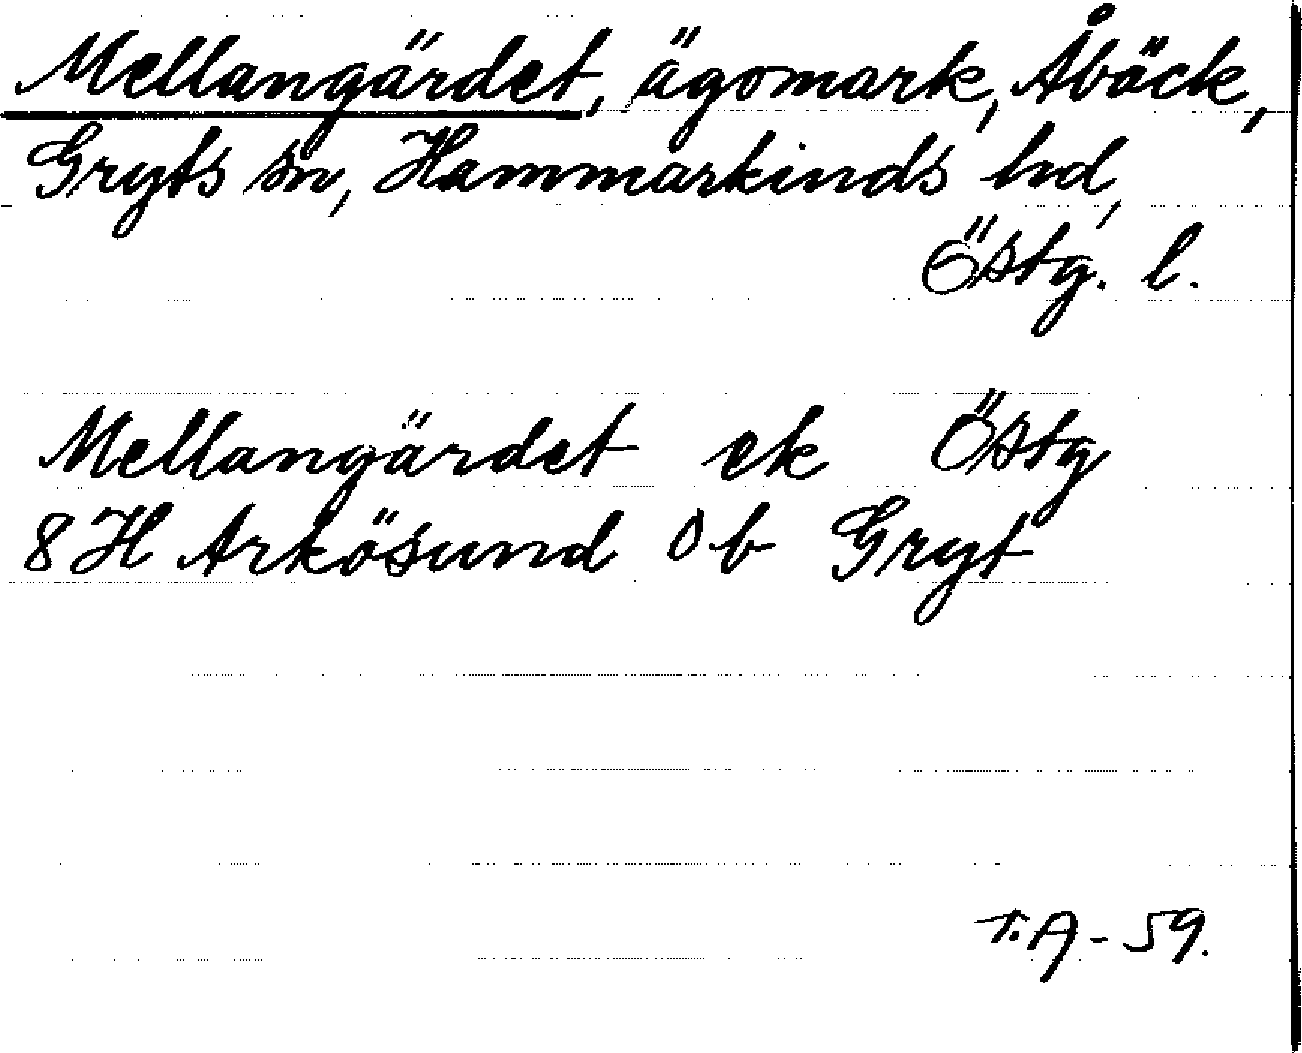 Mellangärdet, ägomark, Åbäck,
Gryts sn, Hammarkinds hd,
Östg. l.
Mellangärdet ek Östg
8H Arkösund 0b Gryt
T.A-59.